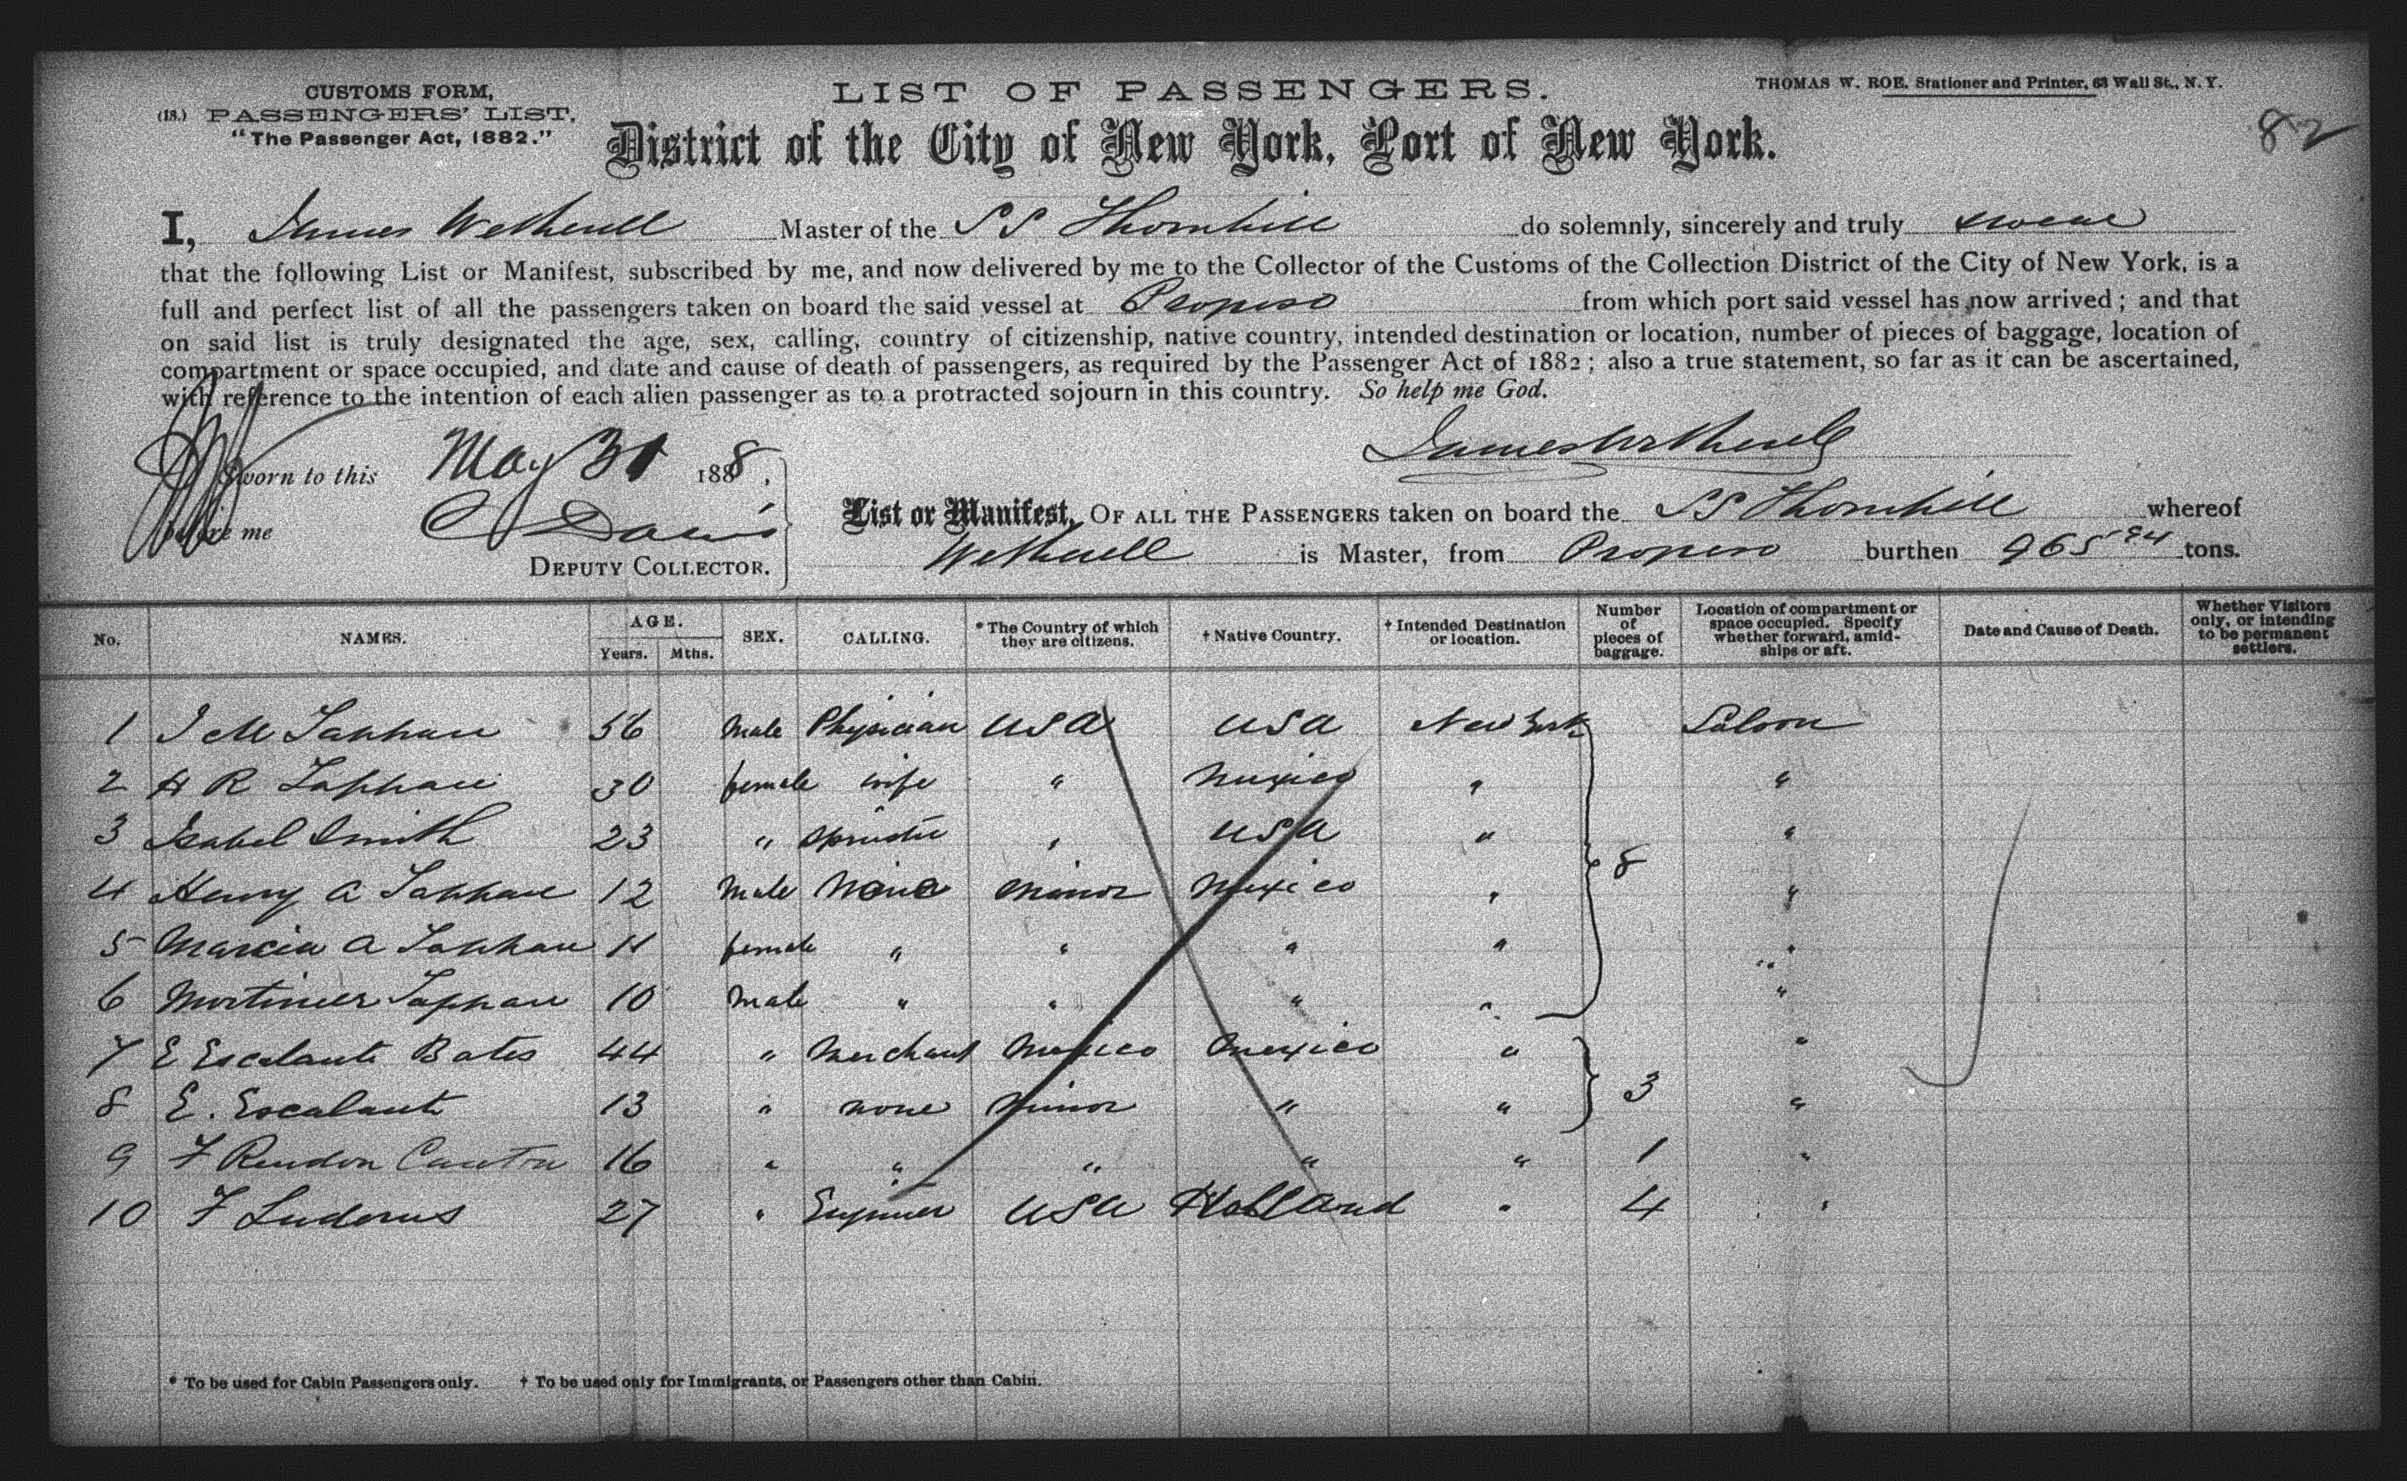 CUSTOMS FORM,
(18.) PASSENGERS' LIST,
"The Passenger Act, 1882."
LIST OF PASSENGERS.
THOMAS W. ROE, Stationer and Printer, 63 Wall St., N. Y.
82
District of the City of New York, Port of New York.
I, James Wetherell Master of the SS Thornhill do solemnly, sincerely and truly swear
that the following List or Manifest, subscribed by me, and now delivered by me to the Collector of the Customs of the Collection District of the City of New York, is a
full and perfect list of all the passengers taken on board the said vessel at Progreso from which port said vessel has now arrived; and that
on said list is truly designated the age, sex, calling, country of citizenship, native country, intended destination or location, number of pieces of baggage, location of
compartment or space occupied, and date and cause of death of passengers, as required by the Passenger Act of 1882; also a true statement, so far as it can be ascertained,
with reference to the intention of each alien passenger as to a protracted sojourn in this country. So help me God.
James Wetherell
Sworn to this May 31 1888.
before me C Davis
DEPUTY COLLECTOR.
List or Manifest, OF ALL THE PASSENGERS taken on board the SS Thornhill whereof
Wetherell is Master, from Progreso burthen 965 94 tons.
No. NAMES. AGE. Years. Mths. SEX. CALLING. * The Country of which they are citizens. † Native Country. † Intended Destination or location. Number of pieces of baggage. Location of compartment or space occupied. Specify whether forward, amidships or aft. Date and Cause of Death. Whether Visitors only, or intending to be permanent settlers.
1 J M Tappan 56 male Physician USA USA New York Saloon
2 H R Tappan 30 female wife " Mexico " "
3 Isabel Smith 23 " Spinster " USA " "
4 Henry A Tappan 12 male None minor Mexico " 8 "
5 Marcia A Tappan 11 female " " " " "
6 Mortimer Tappan 10 male " " " " "
7 E Escalante Bates 44 " Merchant Mexico Mexico " "
8 E. Escalante 13 " none minor " " 3 "
9 F Rendon Canton 16 " " " " " 1 "
10 F Luderus 27 " Engineer USA Holland " 4 "
* To be used for Cabin Passengers only. † To be used only for Immigrants, or Passengers other than Cabin.